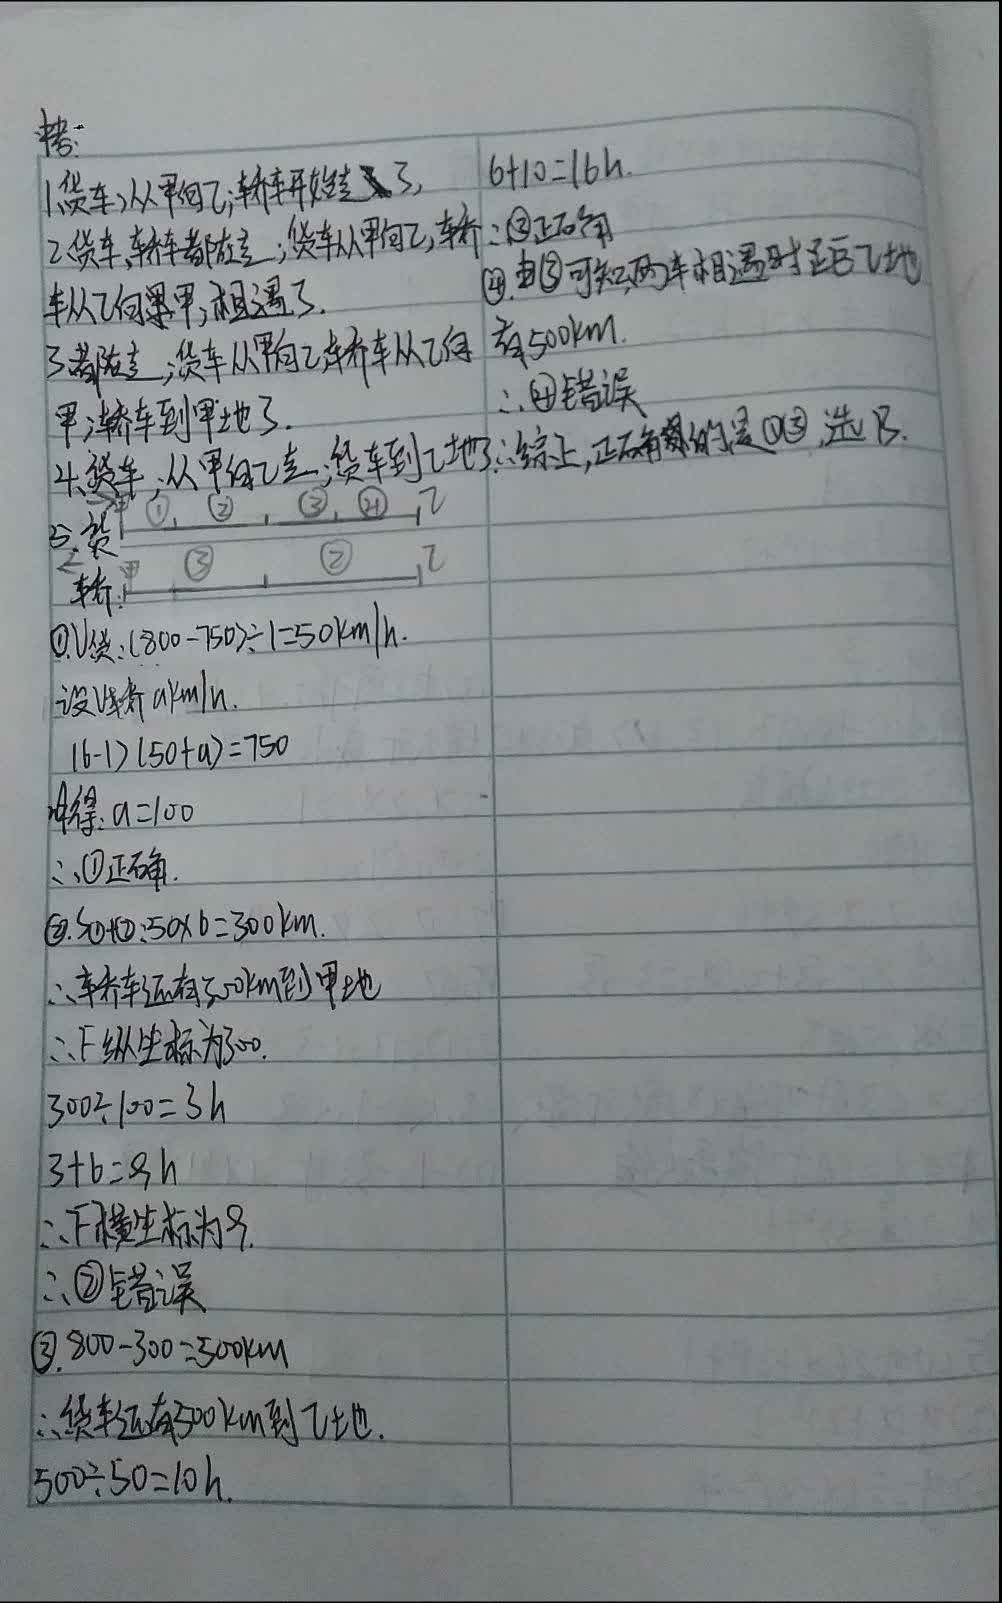 1.货车;从甲向乙;轿车开始走了,
2.货车、轿车都在走;货车从甲向乙,轿
车从乙向甲;相遇了.
3.都在走;货车从甲向乙轿车从乙向
甲;轿车到甲地了.
4.货车;从甲向乙走;货车到乙地了
5.货 甲 ① ② ③ ④ 乙
轿: 甲 ③ ② 乙
①.V货:(800-750)÷1=50km/h.
设V轿akm/h.
(6-1)(50+a)=750
解得:a=100
∴①正确.
②.S①+②:50×6=300km.
∴轿车还有300km到甲地
∴F纵坐标为300.
300÷100=3h
3+6=9h
∴F横坐标为9.
∴②错误
③.800-300=500km
∴货车还有500km到乙地.
500÷50=10h.
6+10=16h.
∴③正确
④.由③可知,两车相遇时距乙地
有500km.
∴④错误
∴综上,正确的是①③,选B.